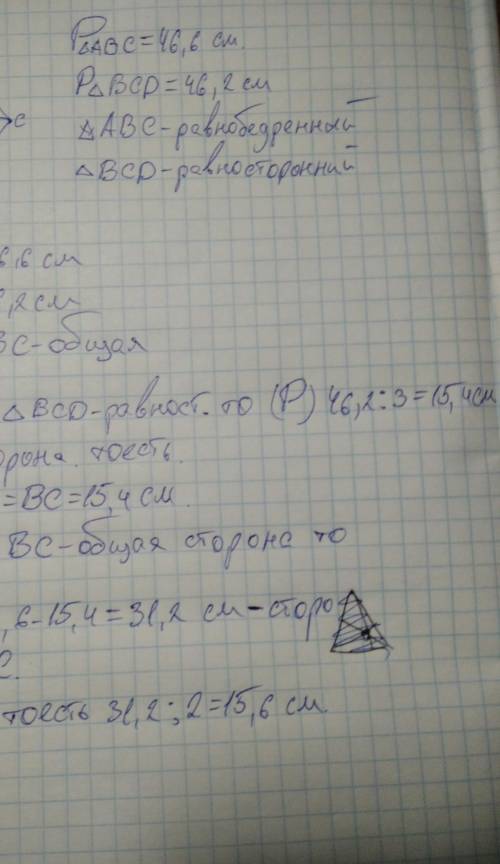 P△ABC=46,6 см
P△BCD=46,2 см
с
△ABC-равнобедренный
△BCD-равносторонний
6,6 см
,2 см
BC-общая
△BCD-равност. то (P) 46,2:3=15,4см
орона. тоесть.
=BC=15,4 см.
BC-общая сторона то
,6-15,4=31,2 см-сторо
С.
тоесть 31,2:2=15,6 см